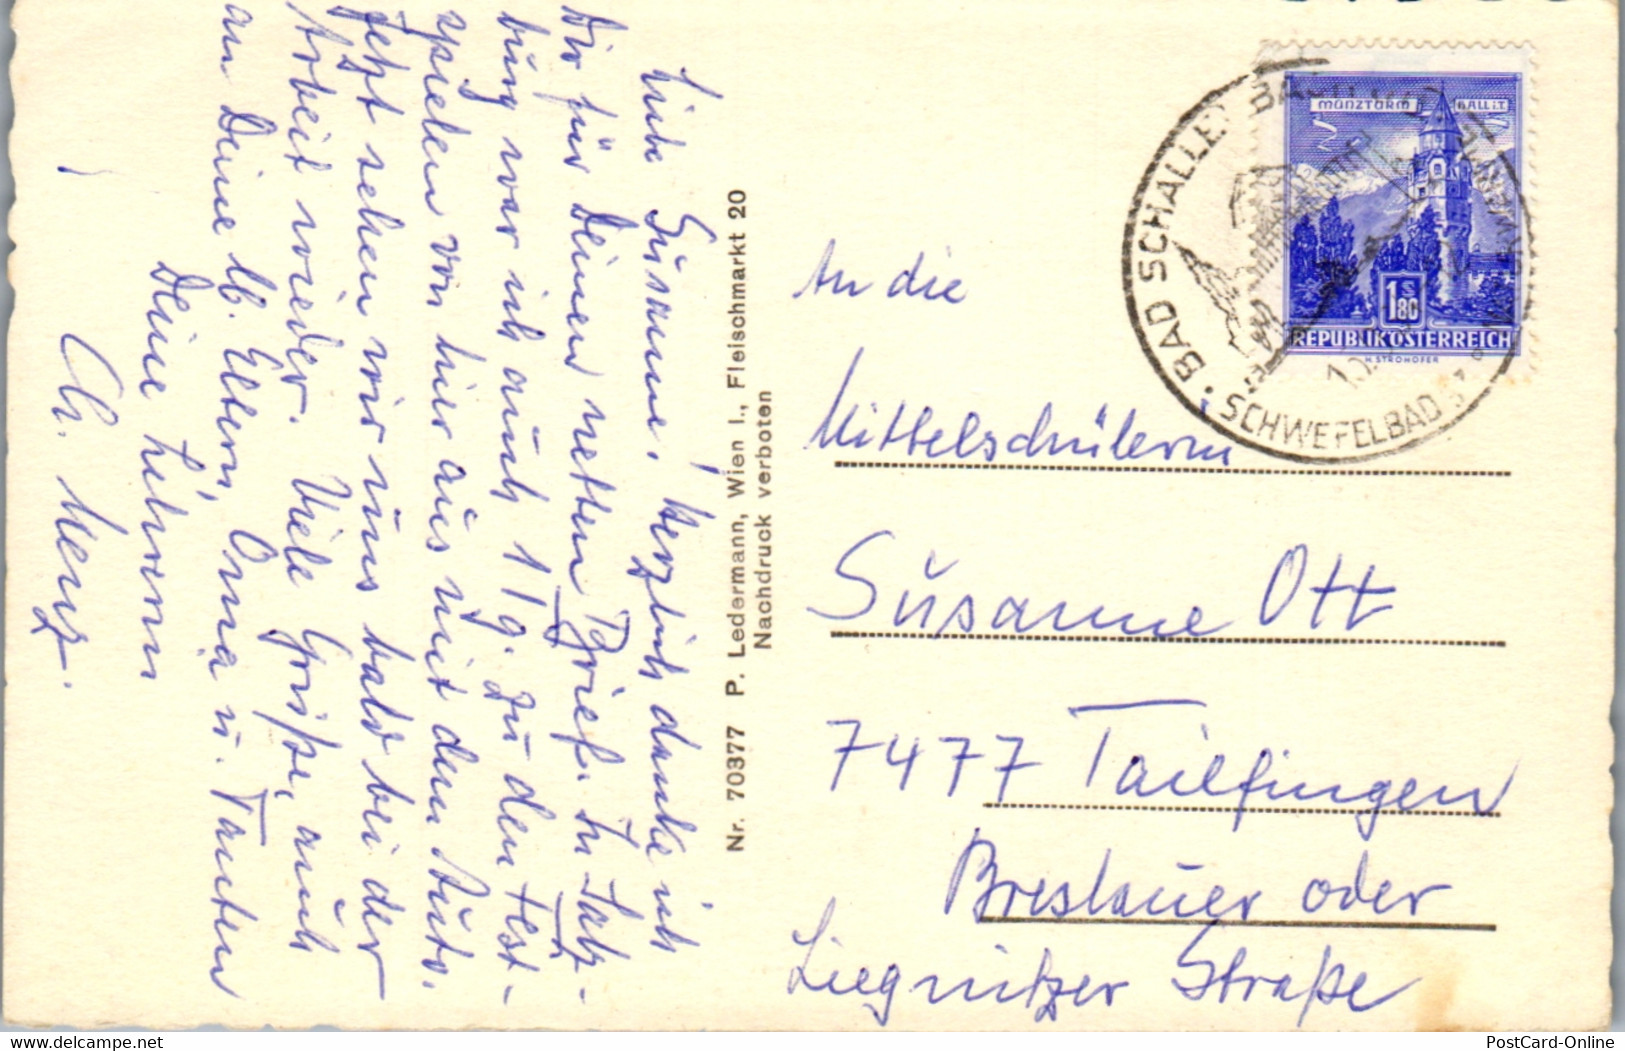 Liebe Susanne, herzlich danke ich
Dir für Deinen netten Brief. In Salz-
burg war ich auch 1 Tg. zu den Fest-
spielen von hier aus mit dem Auto.
Jetzt sehen wir uns bald bei der
Arbeit wieder. Viele Grüße, auch
an Deine lb. Eltern, Oma u. Tanten
Deine Lehrerin
Ch. Menz.
Nr. 70377 P. Ledermann, Wien I., Fleischmarkt 20
Nachdruck verboten
MÜNZTURM HALL i.T.
1.80 S
REPUBLIK ÖSTERREICH
H. STROHOFER
BAD SCHALLERBACH
SCHWEFELBAD
An die
Mittelschülerin
Susanne Ott
7477 Tailfingen
Breslauer oder
Liegnitzer Straße
PostCard-Online